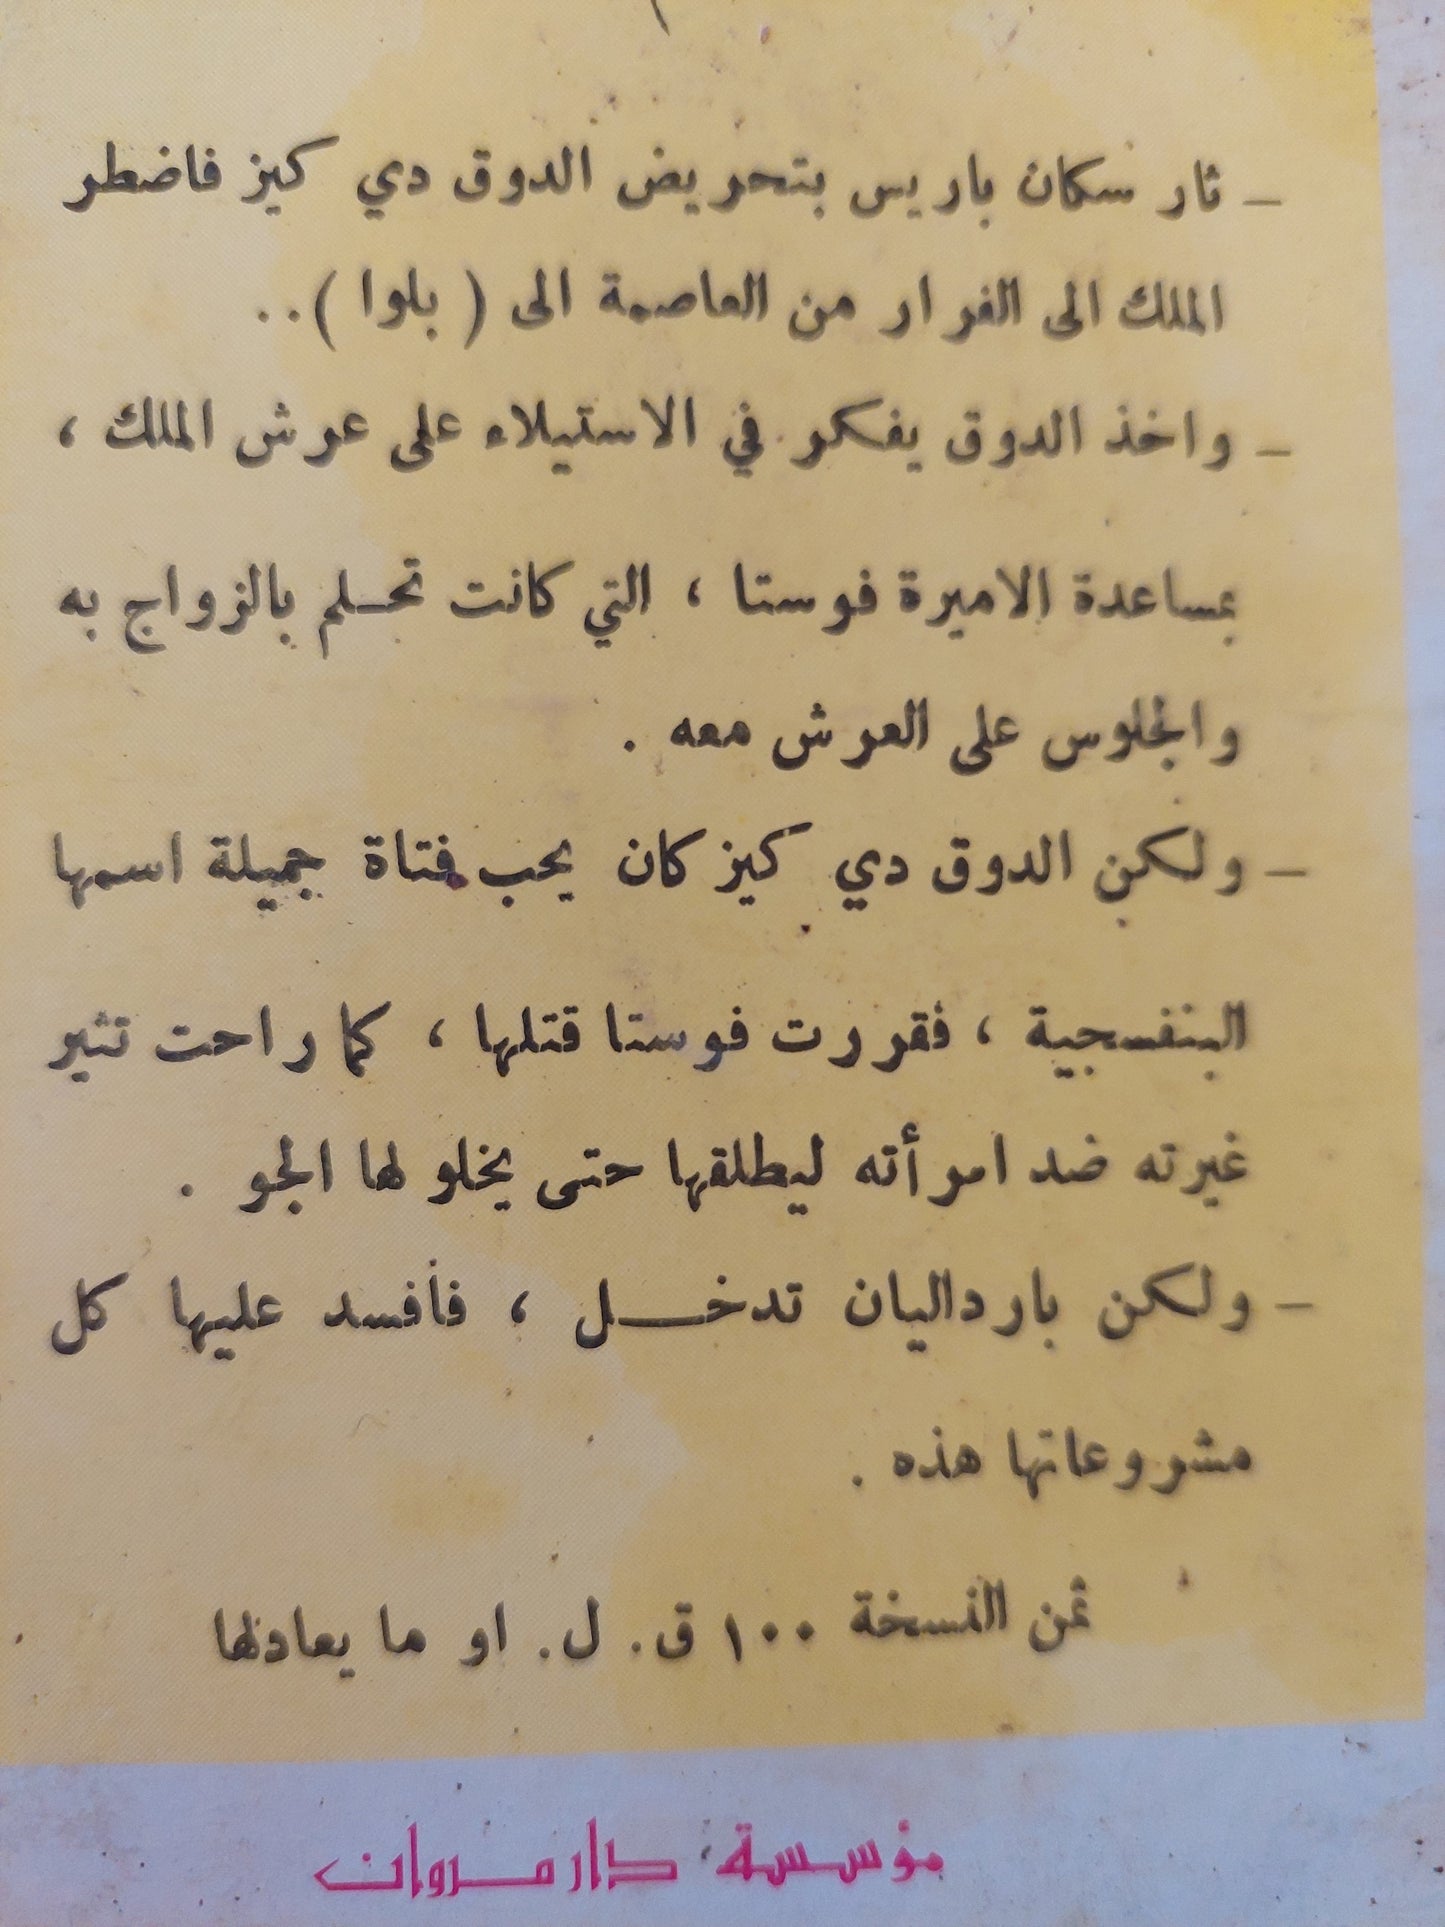 - ثار سكان باريس بتحريض الدوق دي كيز فاضطر
الملك الى الفرار من العاصمة الى ( بلوا ) . .
- واخذ الدوق يفكر في الاستيلاء على عرش الملك ،
بمساعدة الاميرة فوستا ، التي كانت تحلم بالزواج به
والجلوس على العرش معه .
- ولكن الدوق دي كيز كان يحب فتاة جميلة اسمها
البنفسجية ، فقررت فوستا قتلها ، كما راحت تثير
غيرته ضد امرأته ليطلقها حتى يخلو لها الجو .
- ولكن بارداليان تدخـــل ، فأفسد عليها كل
مشروعاتها هذه .
ثمن النسخة ١٠٠ ق. ل. او ما يعادلها
مؤسسة دار مروان